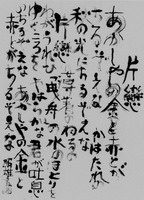 片戀
あかしやの金と赤とが
ちるぞえな かはたれの
秋の光にちるぞえな
片戀の
薄着のねるの
わがうれひ 曳舟の水のほとりを
ゆくころを やはらかな君が吐息の
ちるぞえな あかしやの金と
赤とがちるぞえな